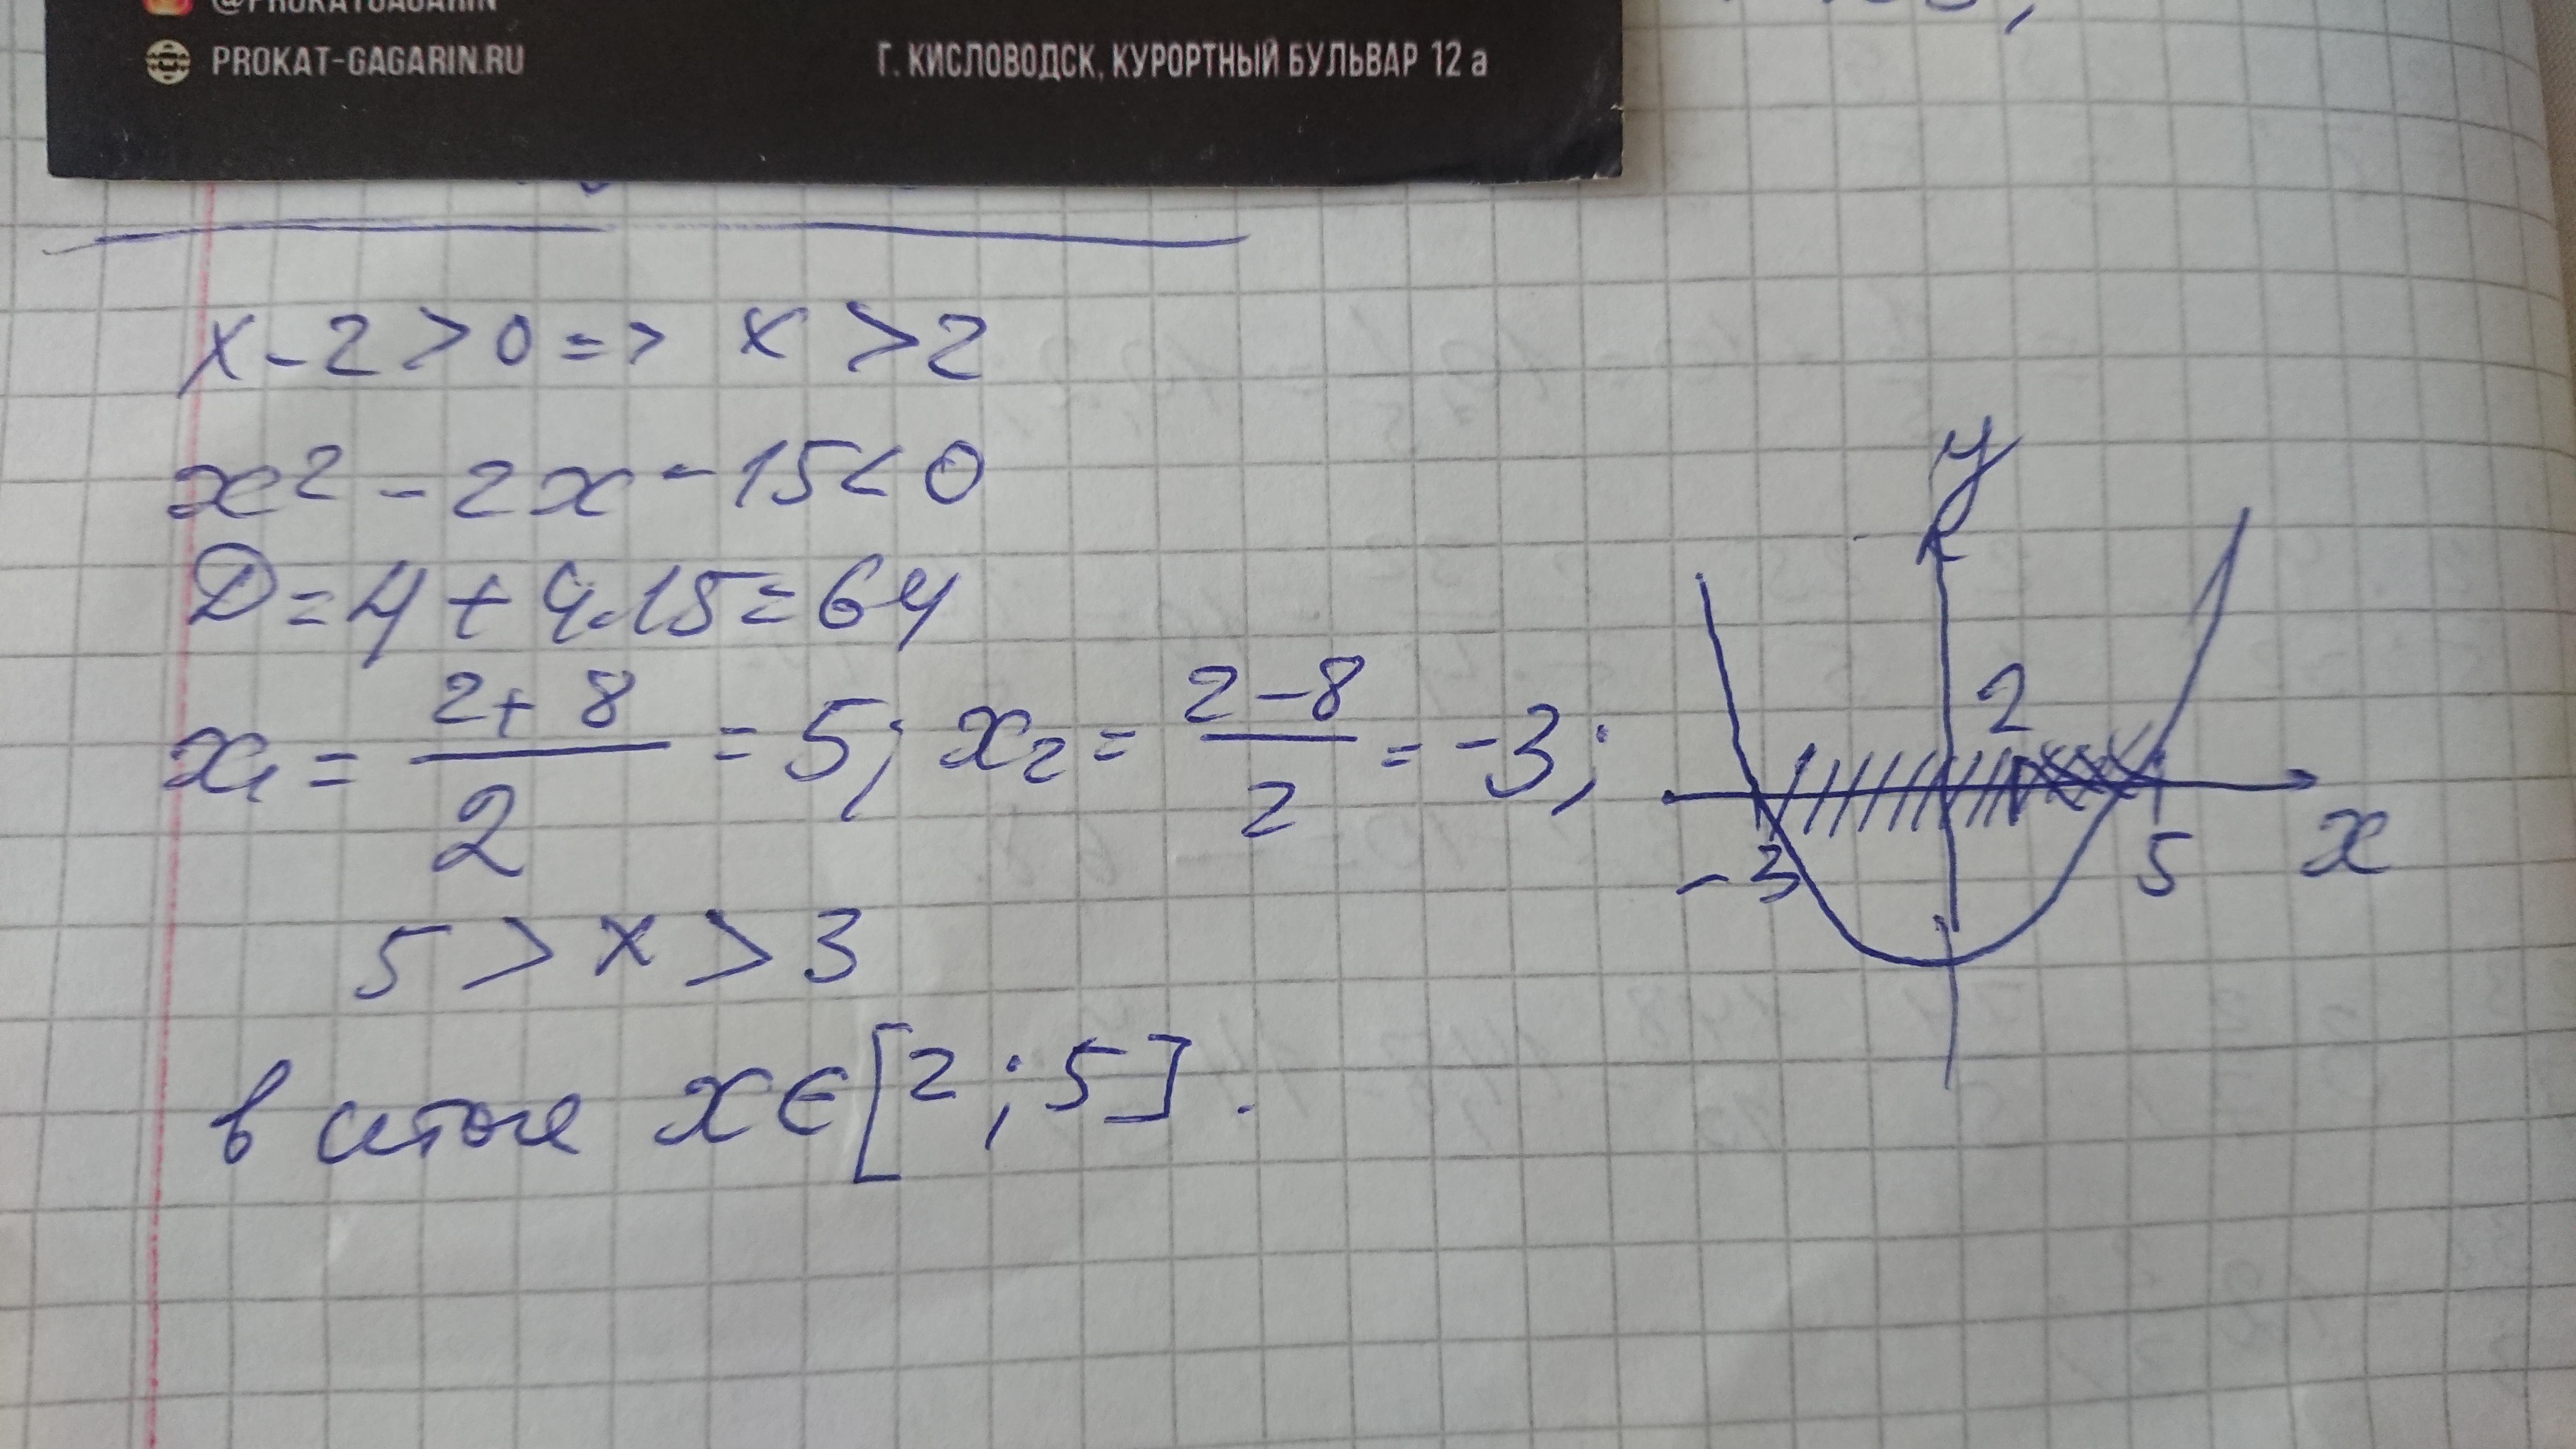 @PROKATGAGARIN
PROKAT-GAGARIN.RU
Г. КИСЛОВОДСК, КУРОРТНЫЙ БУЛЬВАР 12 а
x - 2 > 0 => x > 2
x² - 2x - 15 < 0
D = 4 + 4·15 = 64
x₁ = (2 + 8)/2 = 5; x₂ = (2 - 8)/2 = -3;
5 > x > 3
в итоге x ∈ [2; 5].
y
2
-3
5
x